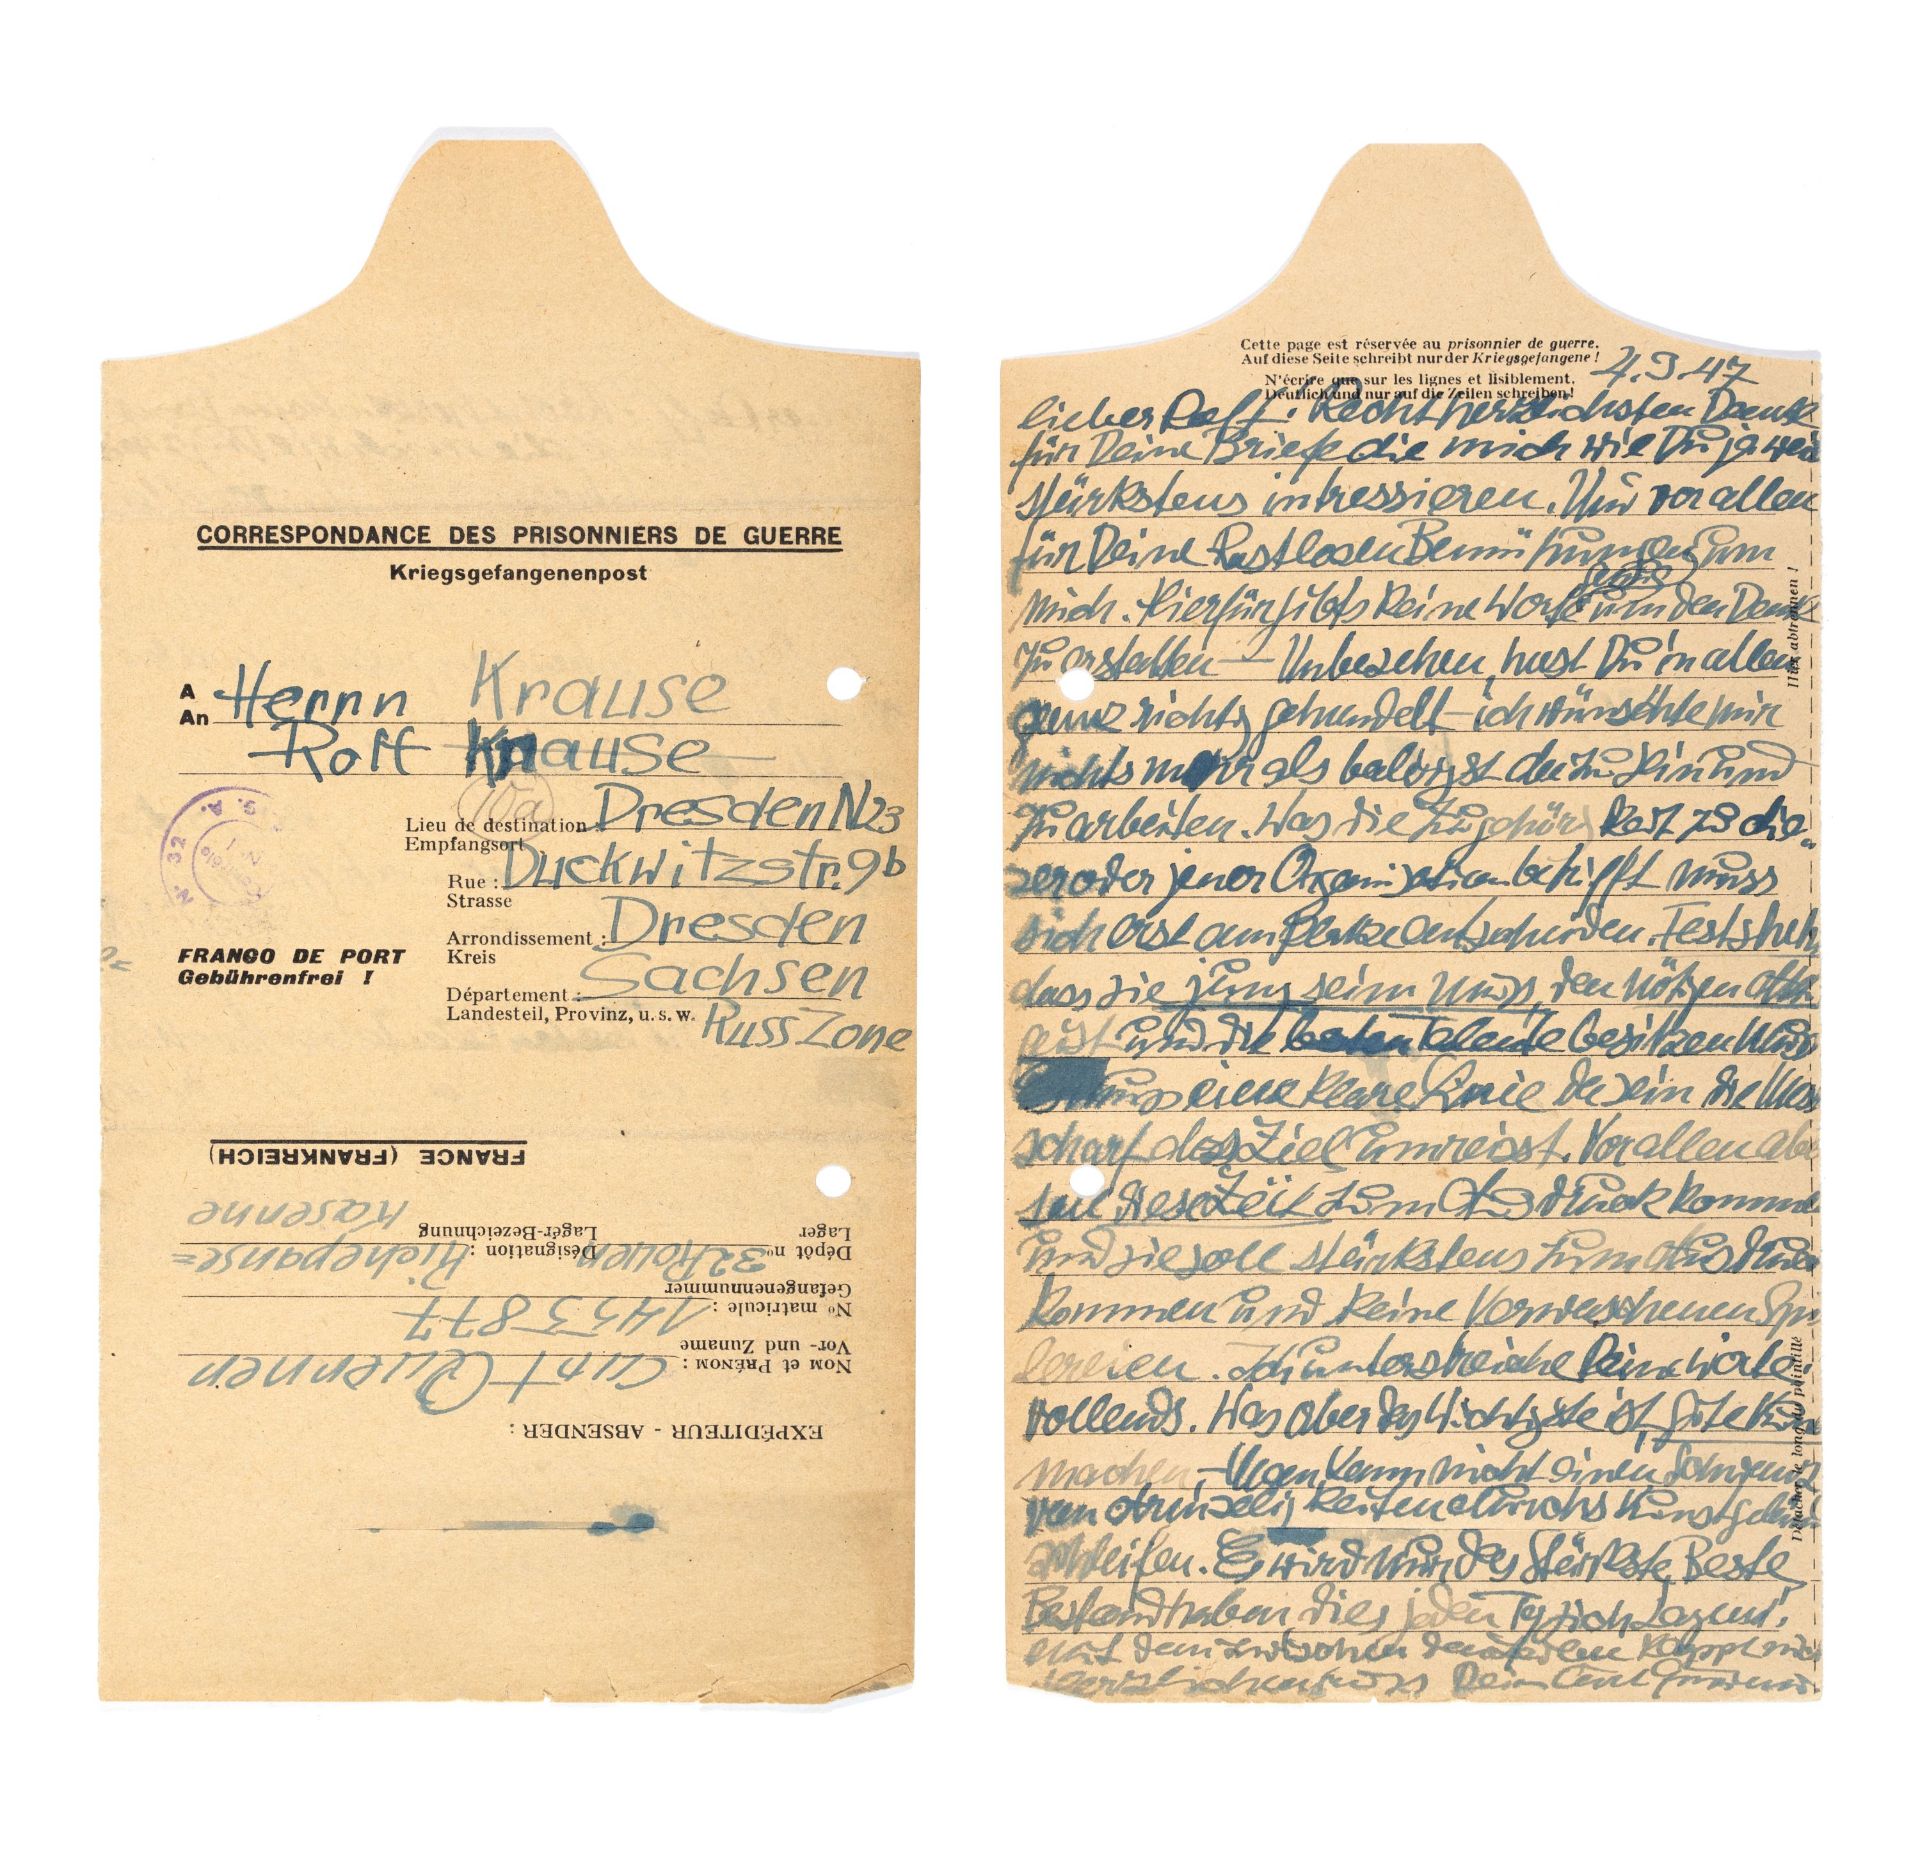 CORRESPONDANCE DES PRISONNIERS DE GUERRE
Kriegsgefangenenpost
A
An
Herrn Krause
Rolf Krause
Lieu de destination :
Empfangsort
Dresden N 23
Rue :
Strasse
Duckwitzstr. 9b
Arrondissement :
Kreis
Dresden
Département :
Landesteil, Provinz, u. s. w.
Sachsen
Russ Zone
FRANCO DE PORT
Gebührenfrei !
N. 32
EXPÉDITEUR - ABSENDER :
NOM et PRÉNOM :
Vor- und Zuname
Curt Querner
No matricule :
Gefangenennummer
1455877
Dépôt no
Lager
32 Rouen
Désignation :
Lager-Bezeichnung
Richepanse=
Kaserne
FRANCE (FRANKREICH)
Cette page est réservée au prisonnier de guerre.
Auf diese Seite schreibt nur der Kriegsgefangene !
N'écrire que sur les lignes et lisiblement.
Deutlich und nur auf die Zeilen schreiben!
4.3.47
lieber Rolf! Recht herzlichsten Dank
für Deine Briefe die mich wie Du ja weis
stärkstens intressieren. Und vor allen
für Deine Rastlosen Bemühungen um
mich. Hierfür gibts keine Worte genug um den Dank
zu erstatten — Unbesehen, hast Du in allen
ganz richtig gehandelt – ich wünschte mir
nichts mehr als baldigst da zu sein und
zu arbeiten. Was die Zugehörigkeit zu die-
ser oder jener Organisation betrifft muss
sich erst am Platze entscheiden. Fest steht
dass sie jung sein muss, den nötgen
und die besten Talente besitzen muss
muss eine klare Linie da sein die
scharf das Ziel umreisst. Vor allen aber
soll diese Zeit zum Ausdruck komme
und sie soll stärkstens zum Ausdruck
kommen und keine Verwaschenen Spie
lereien. Ich unterstreiche Deine Worte
vollends. Was aber das Wichtigste ist gute Kunst
machen – Man kann nicht einen Schwanz
von Armselig keiten durchs Kunstgebäu
schleifen. Es wird nur das Stärkste, Beste
Bestand haben dies jeden Tag sich sagen!
herzlichen Gruss Dein Curt
Hier abtrennen !
Détacher le long du pointillé